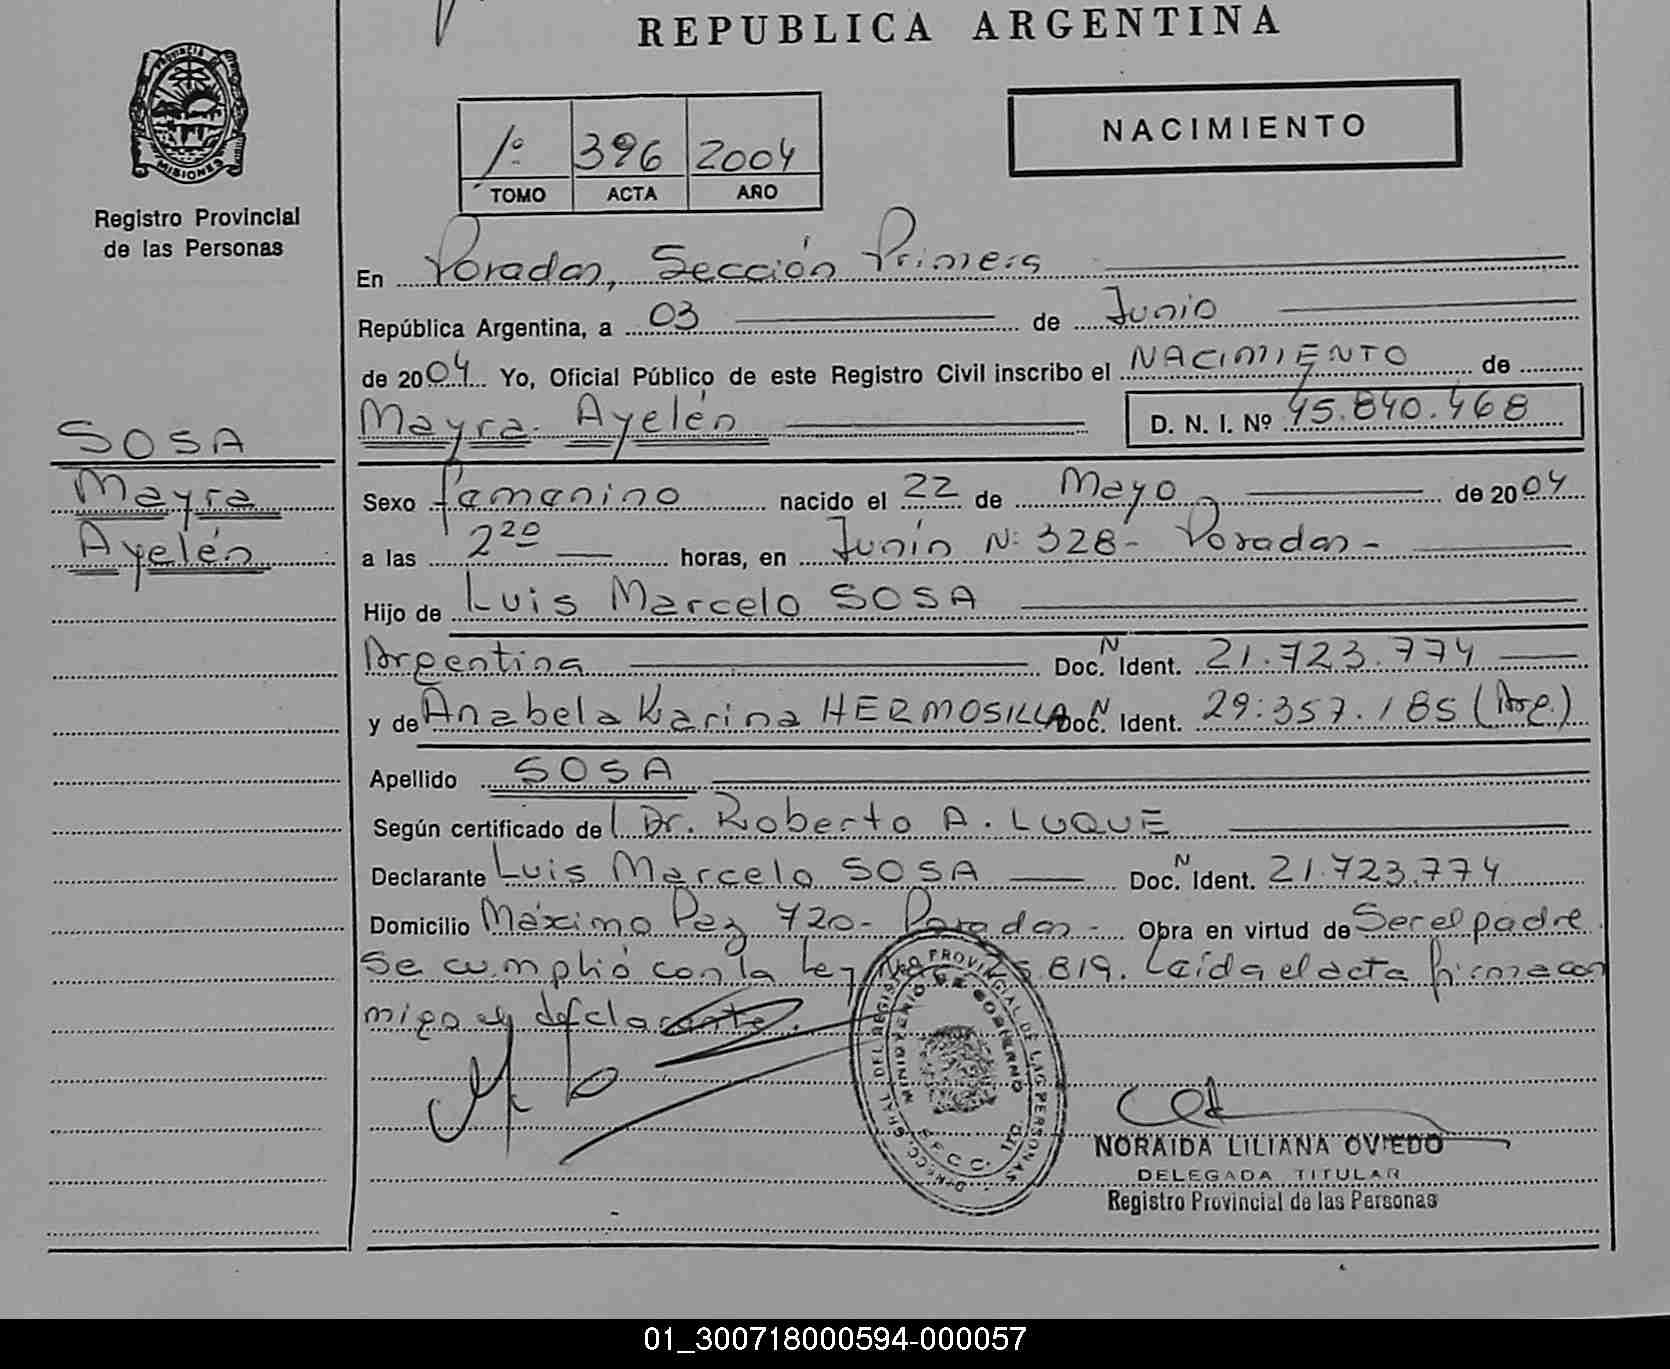 REPUBLICA ARGENTINA
PROVINCIA DE
MISIONES
Registro Provincial
de las Personas
NACIMIENTO
1º 396 2004
TOMO ACTA AÑO
En Posadas, Sección Primera
República Argentina, a 03 de Junio
de 2004 Yo, Oficial Público de este Registro Civil inscribo el NACIMIENTO de
Mayra Ayelén D. N. I. Nº 45.840.468
SOSA
Mayra
Ayelén
Sexo femenino nacido el 22 de Mayo de 2004
a las 2²⁰ horas, en Junín N: 328- Posadas-
Hijo de Luis Marcelo SOSA
Argentina Doc. N Ident. 21.723.774
y de Anabela Karina HERMOSILLA Doc. N Ident. 29.357.185 (Arg.)
Apellido SOSA
Según certificado de Dr. Roberto A. LUQUE
Declarante Luis Marcelo SOSA Doc. N Ident. 21.723.774
Domicilio Máximo Paz 720- Posadas- Obra en virtud de Ser el padre
Se cumplió con la Ley .819. Leída el acta firma con
migo el declarante.
REGISTRO PROVINCIAL DE LAS PERSONAS
MINISTERIO DE GOBIERNO
NORAIDA LILIANA OVIEDO
DELEGADA TITULAR
Registro Provincial de las Personas
01_300718000594-000057